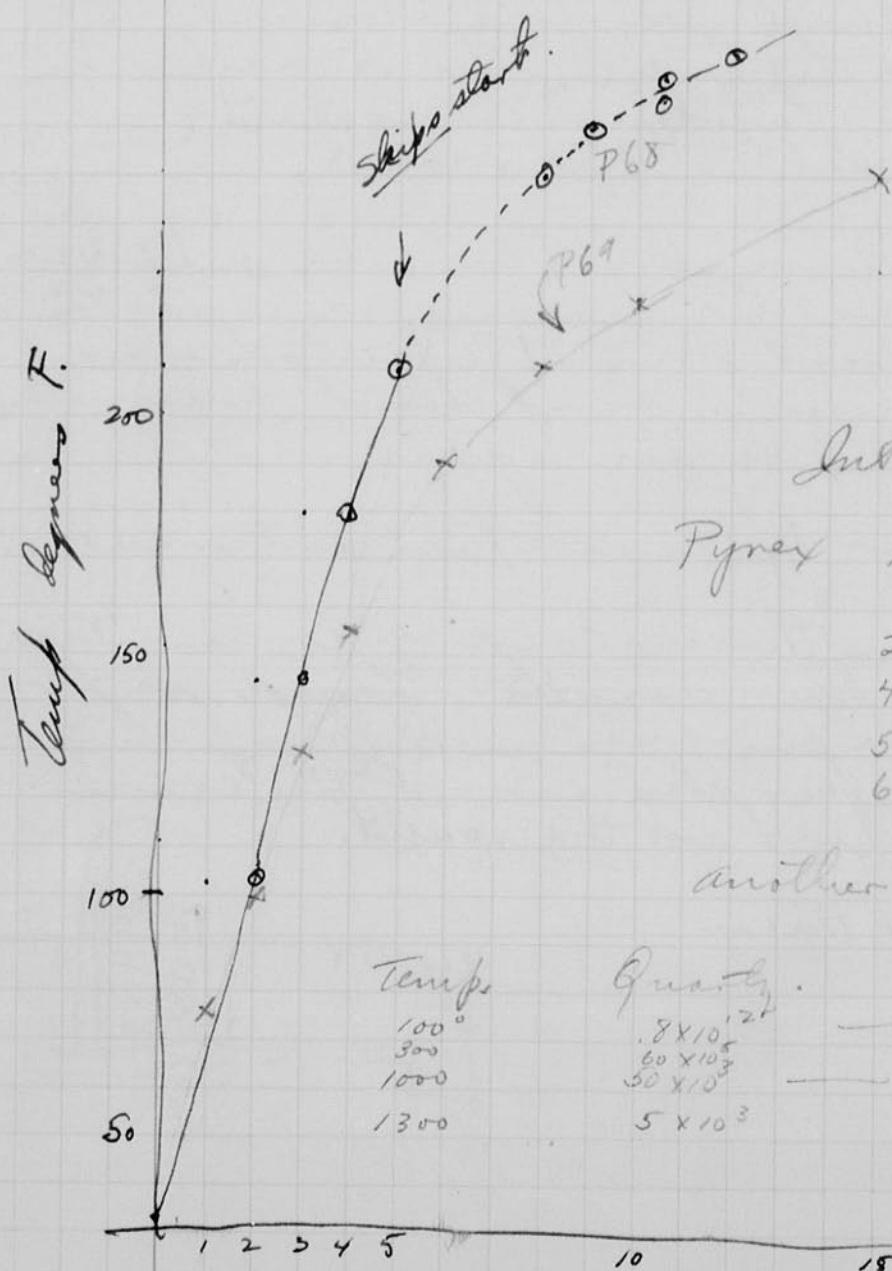 Skips start.
P68
P69
Temp degrees F.
200
150
100
50
Pyrex
4
5
6
another
Temp. Quartz.
100° .8 x 10¹²
300
1000 50 x 10³
1300 5 x 10³
1 2 3 4 5 10 15